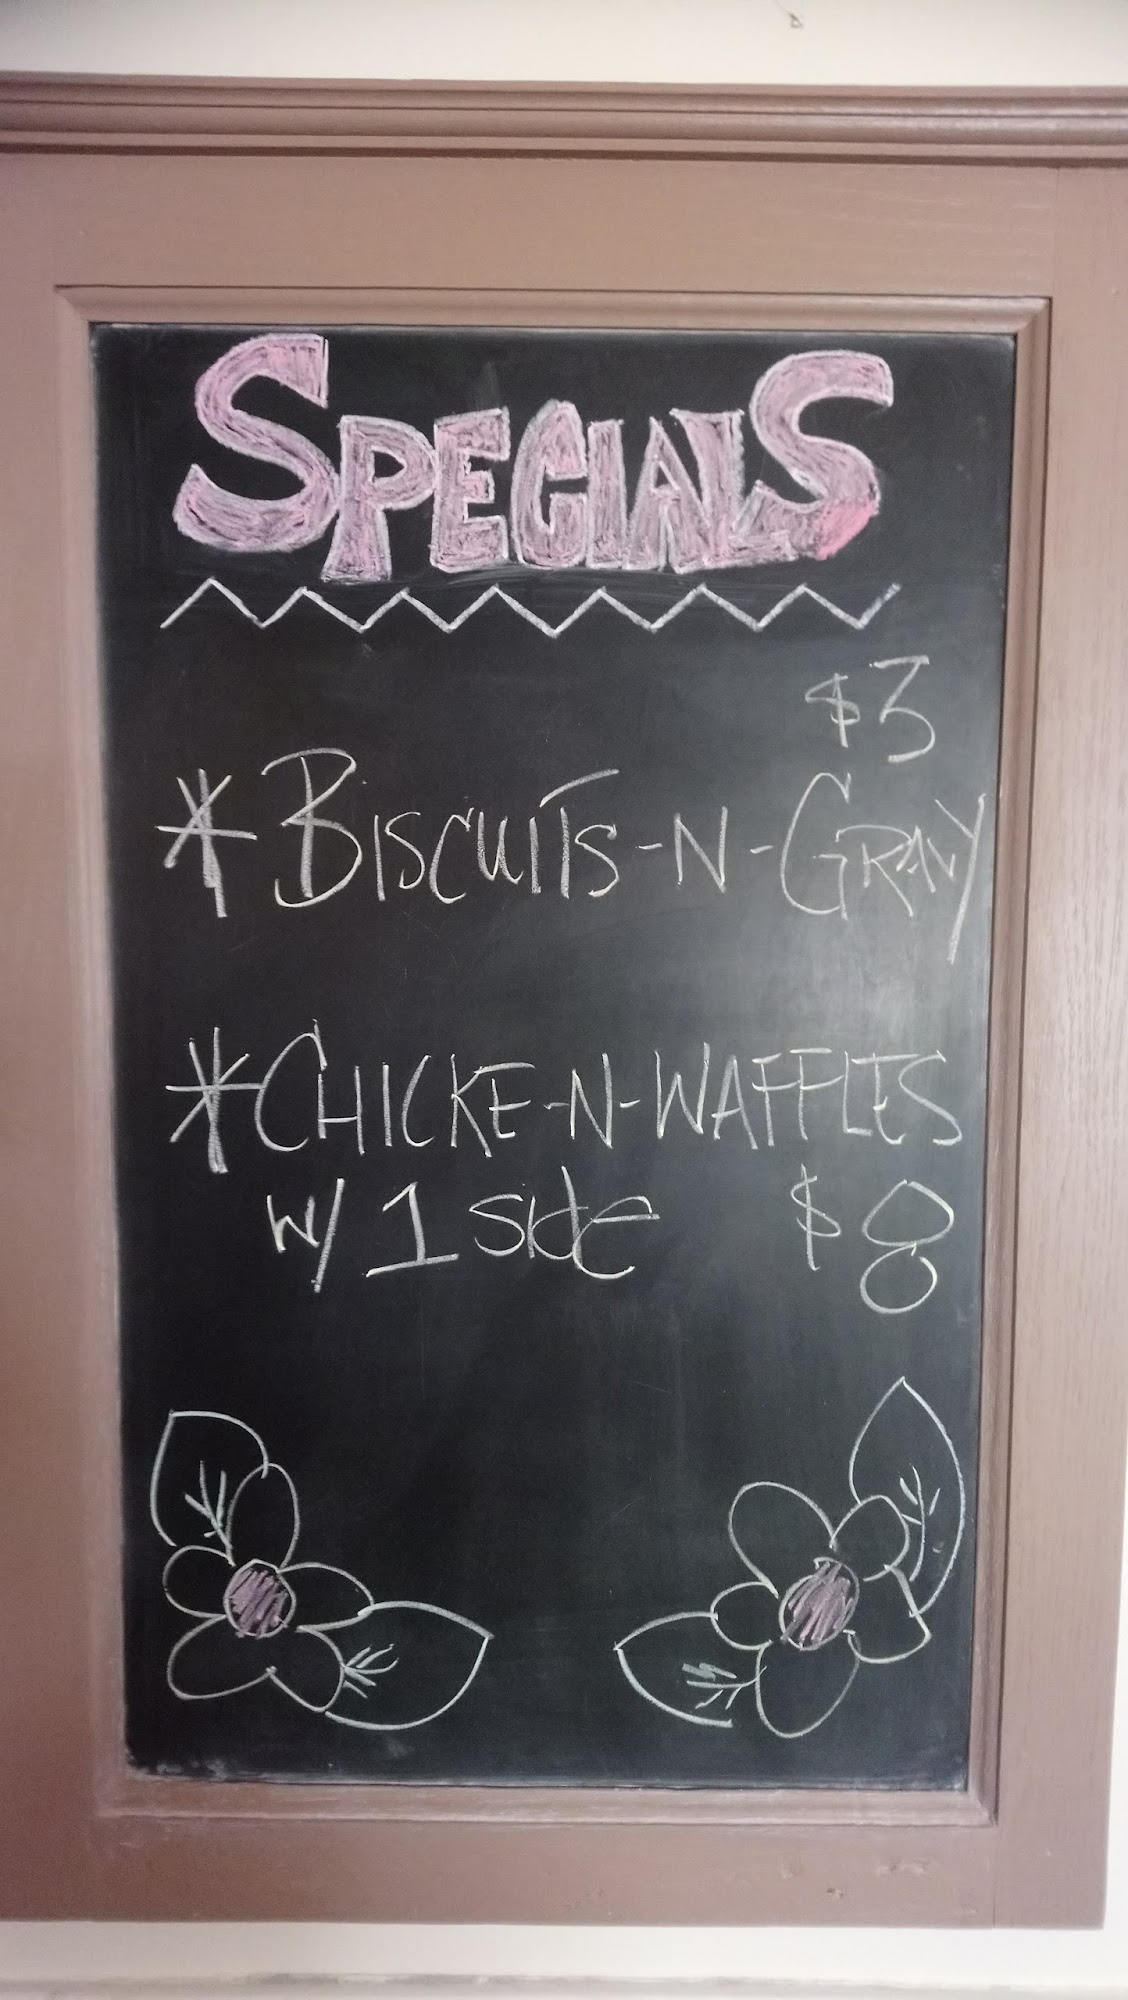 SPECIALS
$3
* BISCUITS-N-GRAVY
* CHICKE-N-WAFFLES
W/ 1 SIDE $8